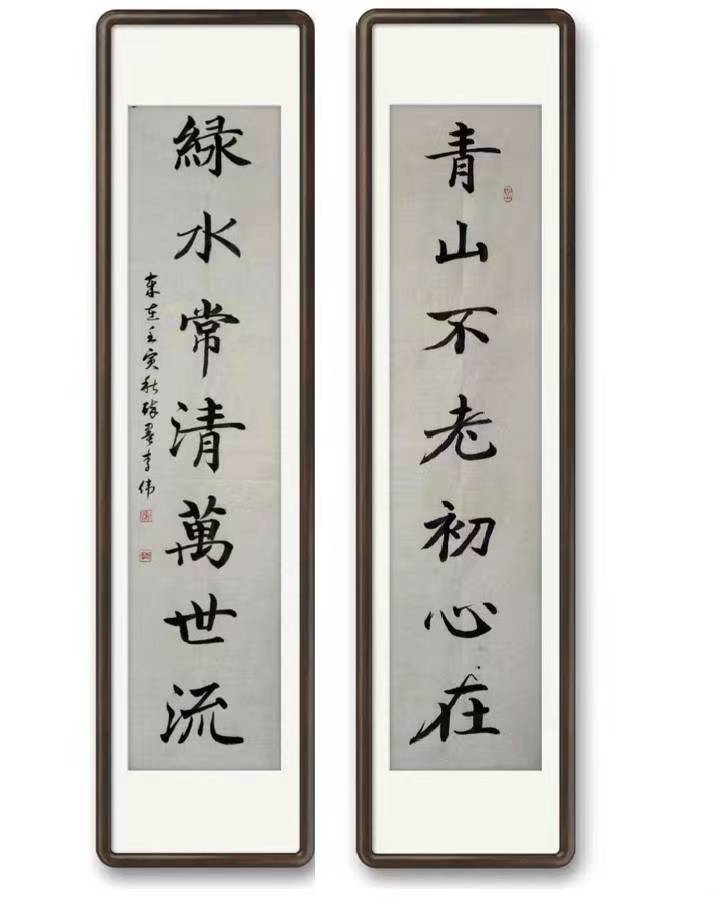 青山不老初心在
綠水常清萬世流
壬寅秋 李伟